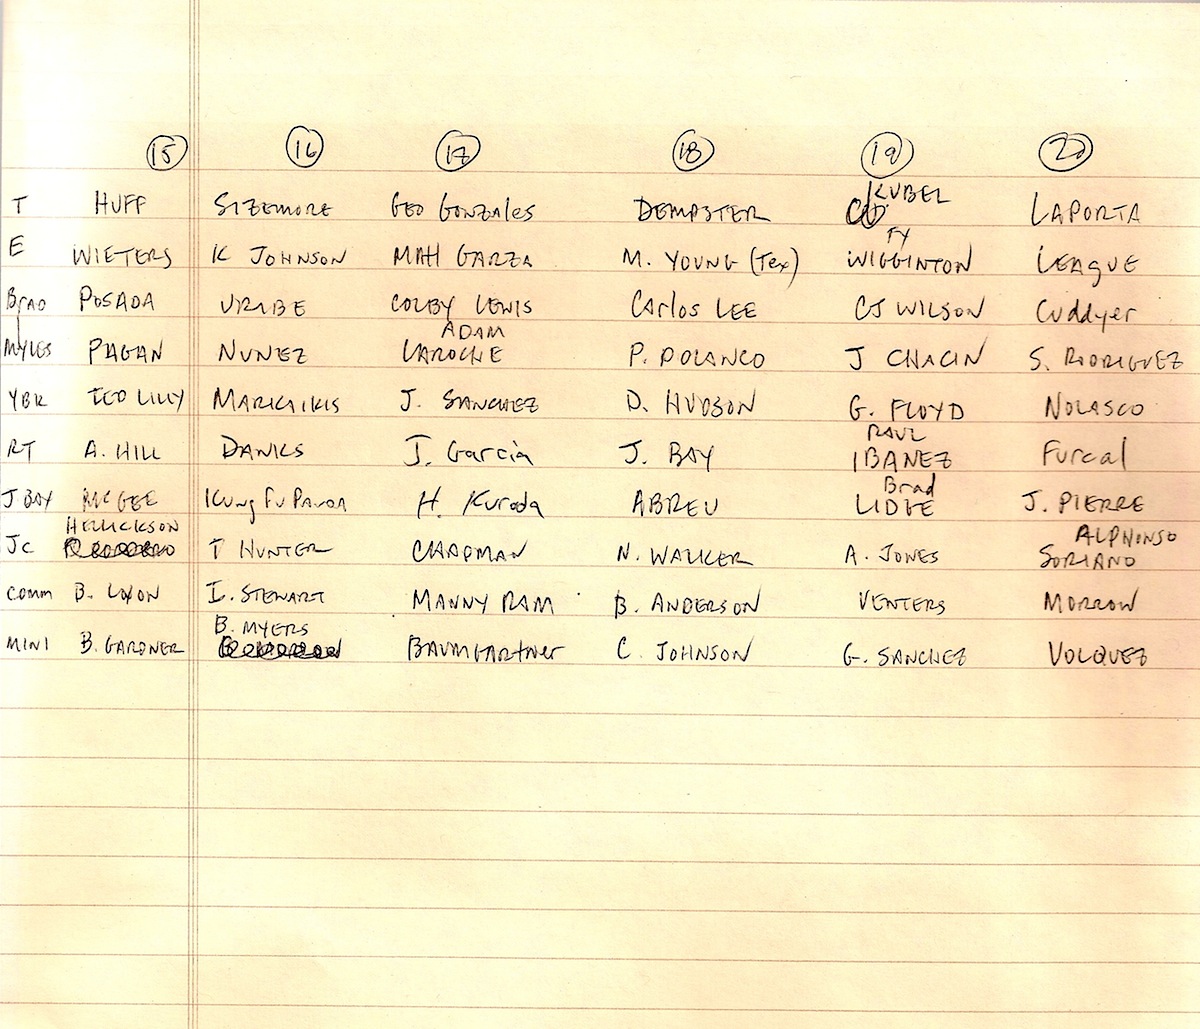 15 16 17 18 19 20
T HUFF SIZEMORE GEO GONZALES DEMPSTER KUBEL LAPORTA
E WIETERS K JOHNSON MATT GARZA M. YOUNG (TEX) TY WIGGINTON LEAGUE
BRAD POSADA URIBE COLBY LEWIS CARLOS LEE CJ WILSON Cuddyer
MYLES PAGAN NUNEZ ADAM LAROCHE P. POLANCO J CHACIN S. RODRIGUEZ
YBR TED LILLY MARKAIKIS J. SANCHEZ D. HUDSON G. FLOYD NOLASCO
RT A. HILL DANKS J. Garcia J. BAY RAUL IBANEZ Furcal
J BOY MCGEE KUng FU PANDA H. Kuroda ABREU Brad LIDGE J. PIERRE
JC HELLICKSON T HUNTER CHAPMAN N. WALKER A. JONES ALPHONSO SORIANO
COMM B. I. STEWART MANNY RAM B. ANDERSON VENTERS MORROW
MINI B. GARDNER B. MYERS BAUMGARTNER C. JOHNSON G. SANCHEZ VOLQUEZ